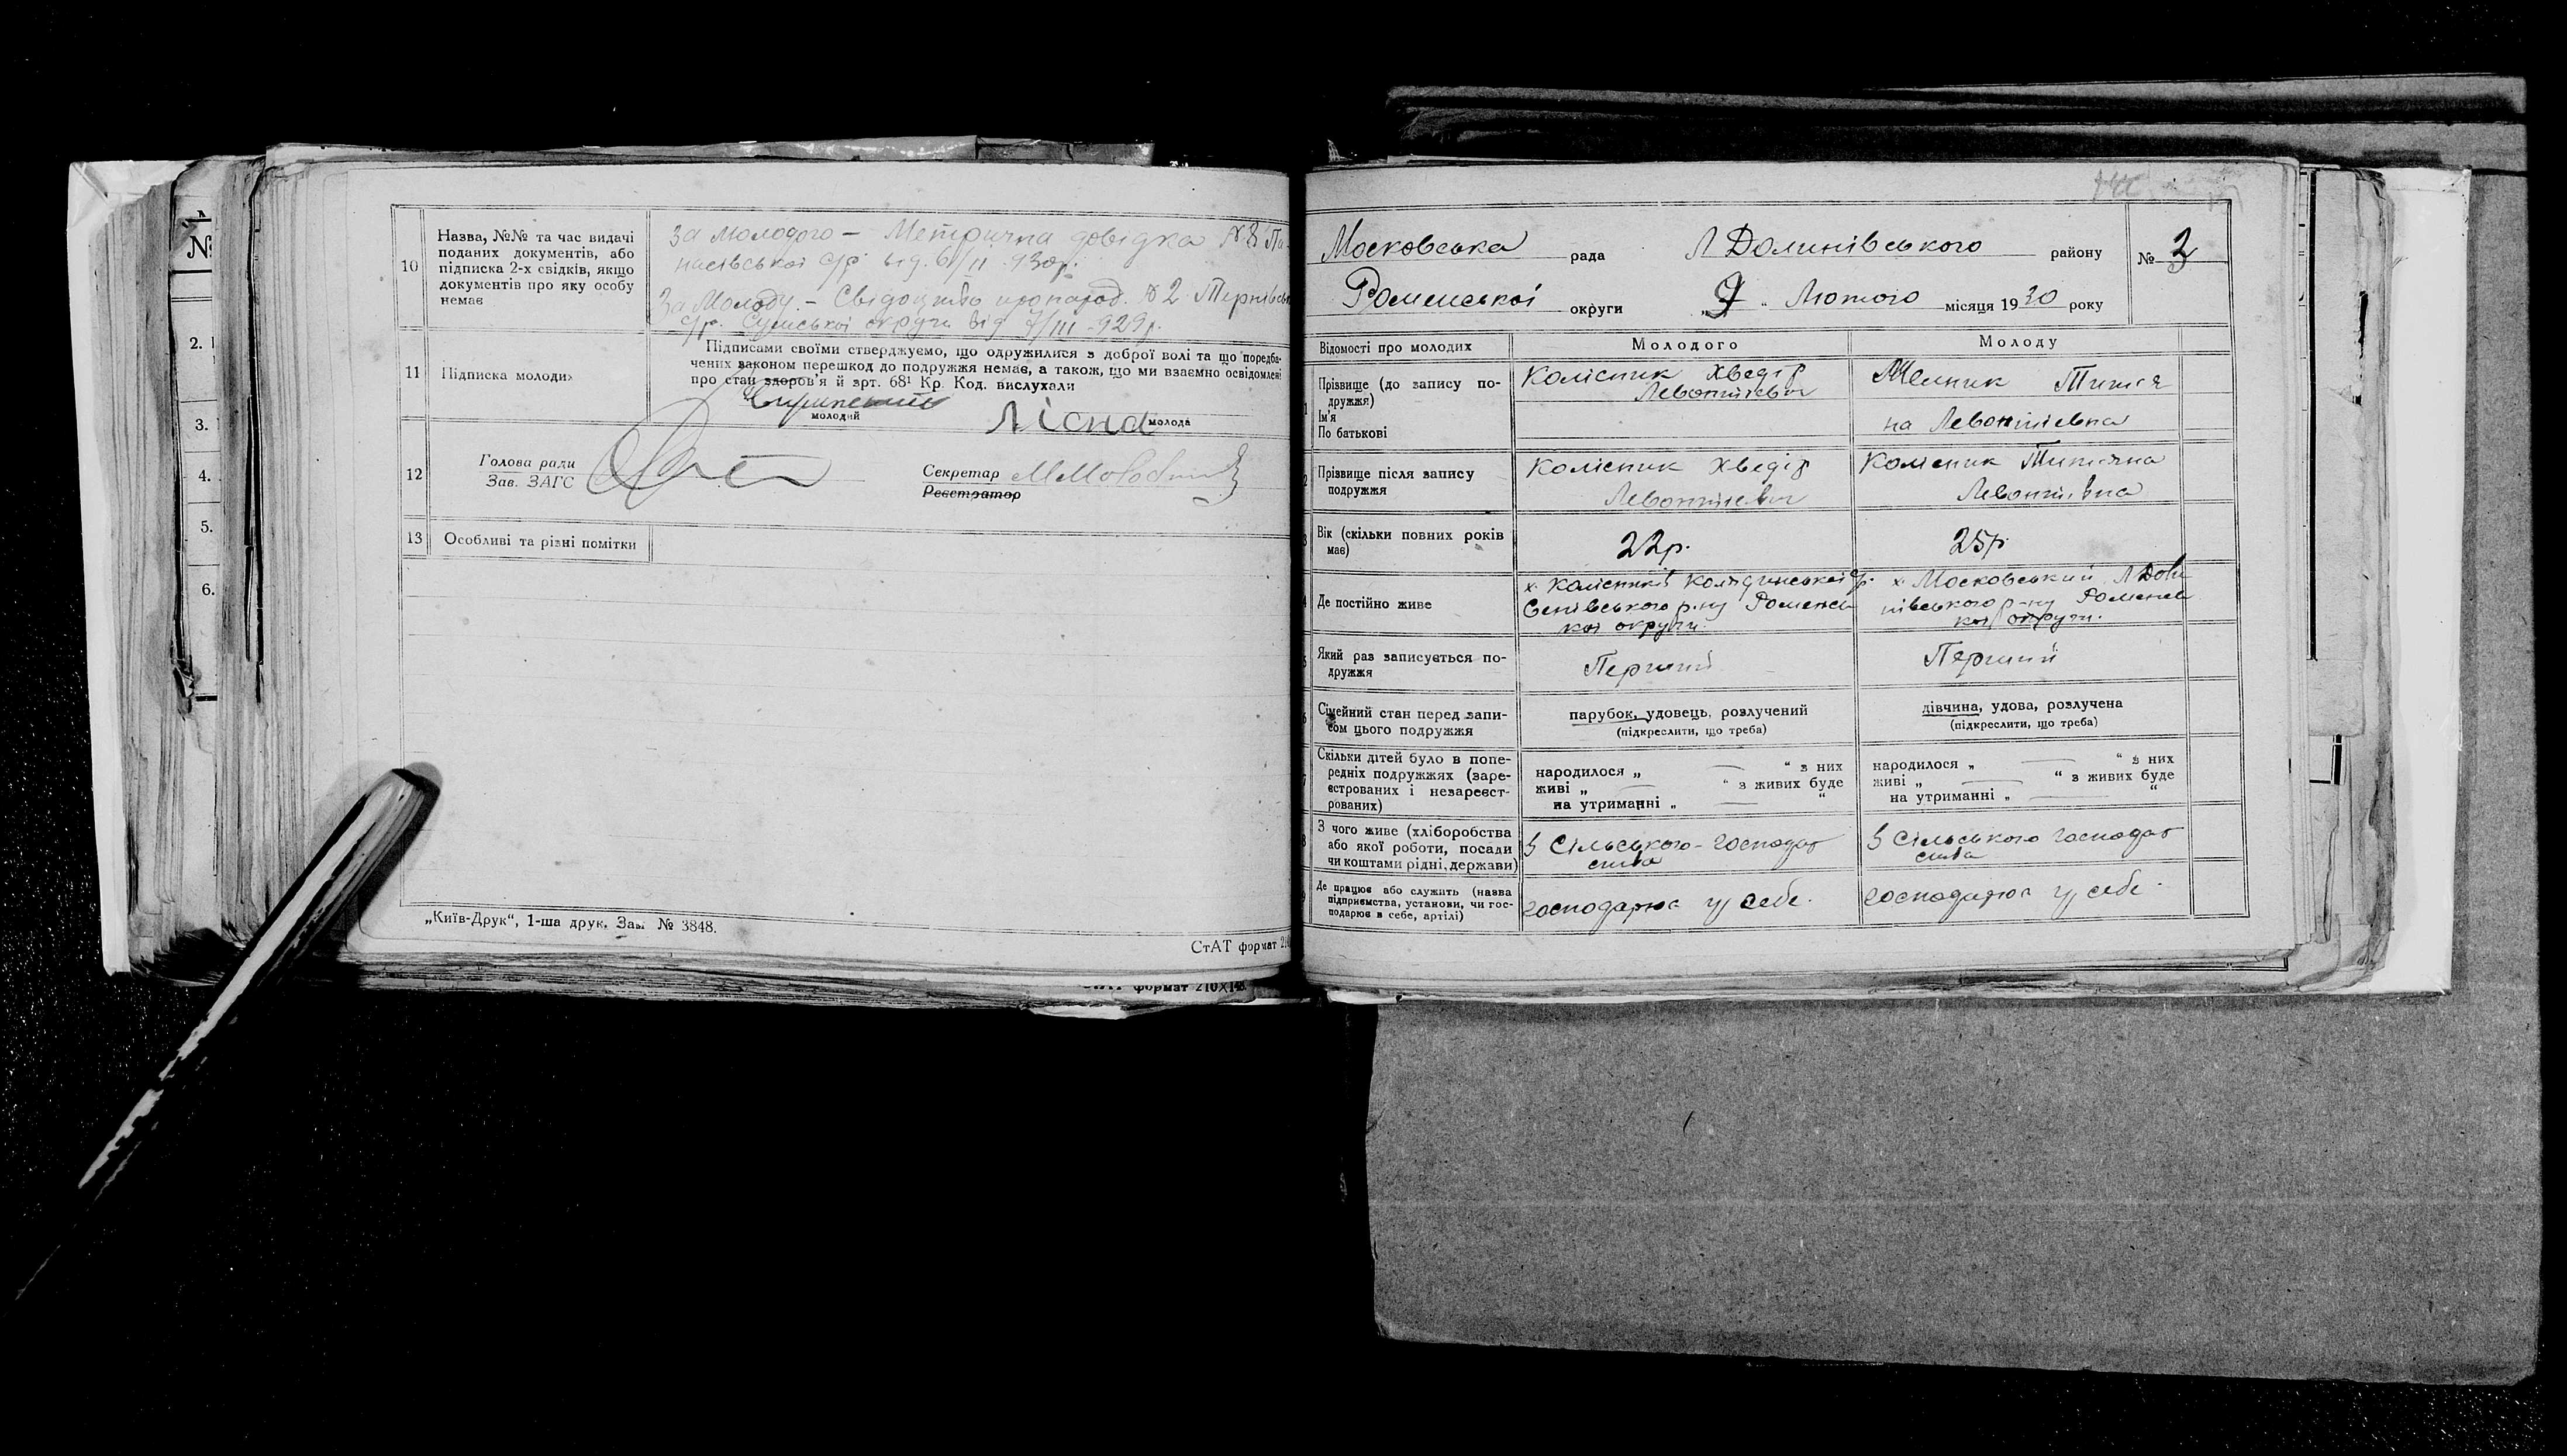 10
Назва, №№ та час видачі
поданих документів, або
підписка 2-х свідків, якщо
документів про яку особу
немає
За Молодого — Метрична довідка № 8 Па-
насівської с/р від 6/II 930р.
За Молоду. — Свідоцтво про народ. № 2 Тернівськ
с/р. Сумської округи від 7/III - 929р.
11
Підписка молодих
Підписами своїми стверджуємо, що одружилися з доброї волі та що передба-
чених законом перешкод до подружжя немає, а також, що ми взаємно освідомлені
про стан здоров'я й арт. 68¹ Кр. Код. вислухали
молодий
Лісна молода
12
Голова ради
Зав. ЗАГС
Секретар
Реєстратор
13
Особливі та різні помітки
„Київ-Друк“, 1-ша друк. Зам. № 3848.
СтАТ формат 210
СтАТ формат 210Х148
№
2.
3.
4.
5.
6.
Московська рада Л Долинівського району № 2
Роменської округи „9“ Лютого місяця 1930 року
Відомості про молодих
Молодого
Молоду
Прізвище (до запису по-
дружжя)
Ім'я
По батькові
Колісник Хведір
Левонтієвич
Мельник Титя
на Левонтієвна
Прізвище після запису
подружжя
Колісник Хведір
Левонтієвич
Колісник Титяна
Левонтівна
Вік (скільки повних років
має)
22р.
25р.
Де постійно живе
х. Колісників Колядинської с/р.
Сенівського р-ну Роменсь
кої округи.
х. Московський Л Доли
нівського р-ну Роменсь
кої округи.
Який раз записується по-
дружжя
Перший
Перший
Сімейний стан перед запи-
сом цього подружжя
парубок, удовець, розлучений
(підкреслити, що треба)
дівчина, удова, розлучена
(підкреслити, що треба)
Скільки дітей було в попе-
редніх подружжях (заре-
єстрованих і незареєст-
рованих)
народилося „ — “ з них
живі „ — “ з живих буде
на утриманні „ — “
народилося „ — “ з них
живі „ — “ з живих буде
на утриманні „ — “
З чого живе (хліборобства
або якої роботи, посади
чи коштами рідні, держави)
З Сільського-господар
ства
З Сільського господар
ства
Де працює або служить (назва
підприємства, установи, чи гос-
подарює в себе, артілі)
господарює у себе.
господарює у себе.